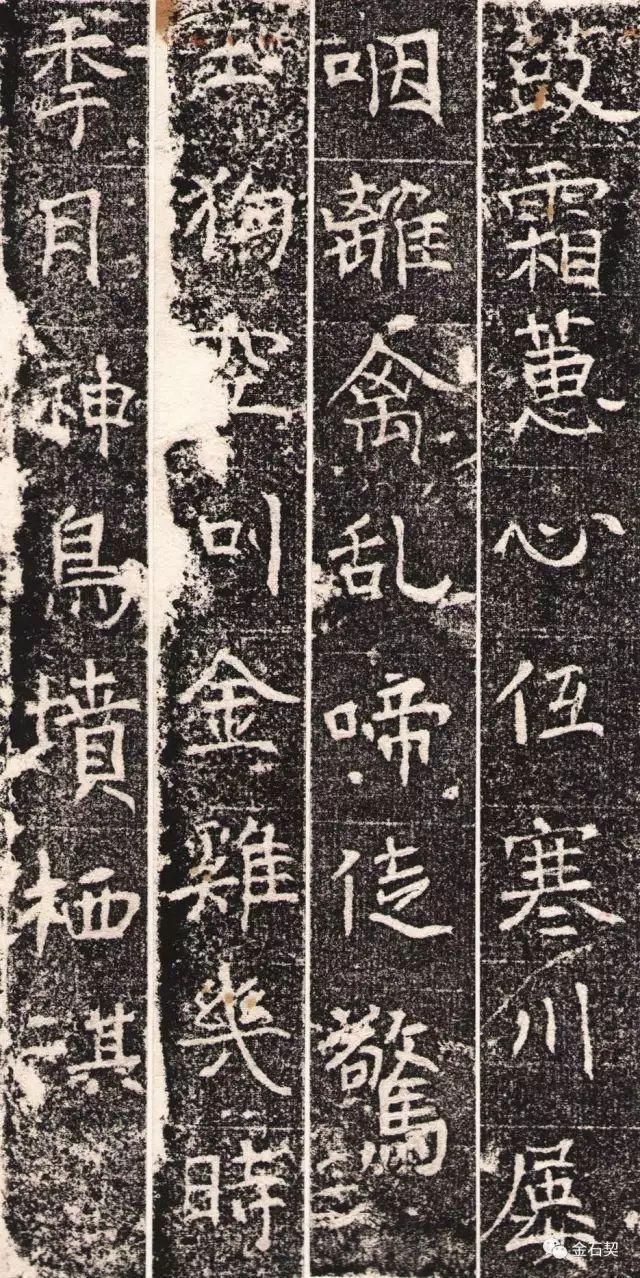 鼓霜蕙心伍寒川屢
咽離禽乱啼徒驚
土狗空叫金雞幾時
季月神鳥墳栖琪
金石契